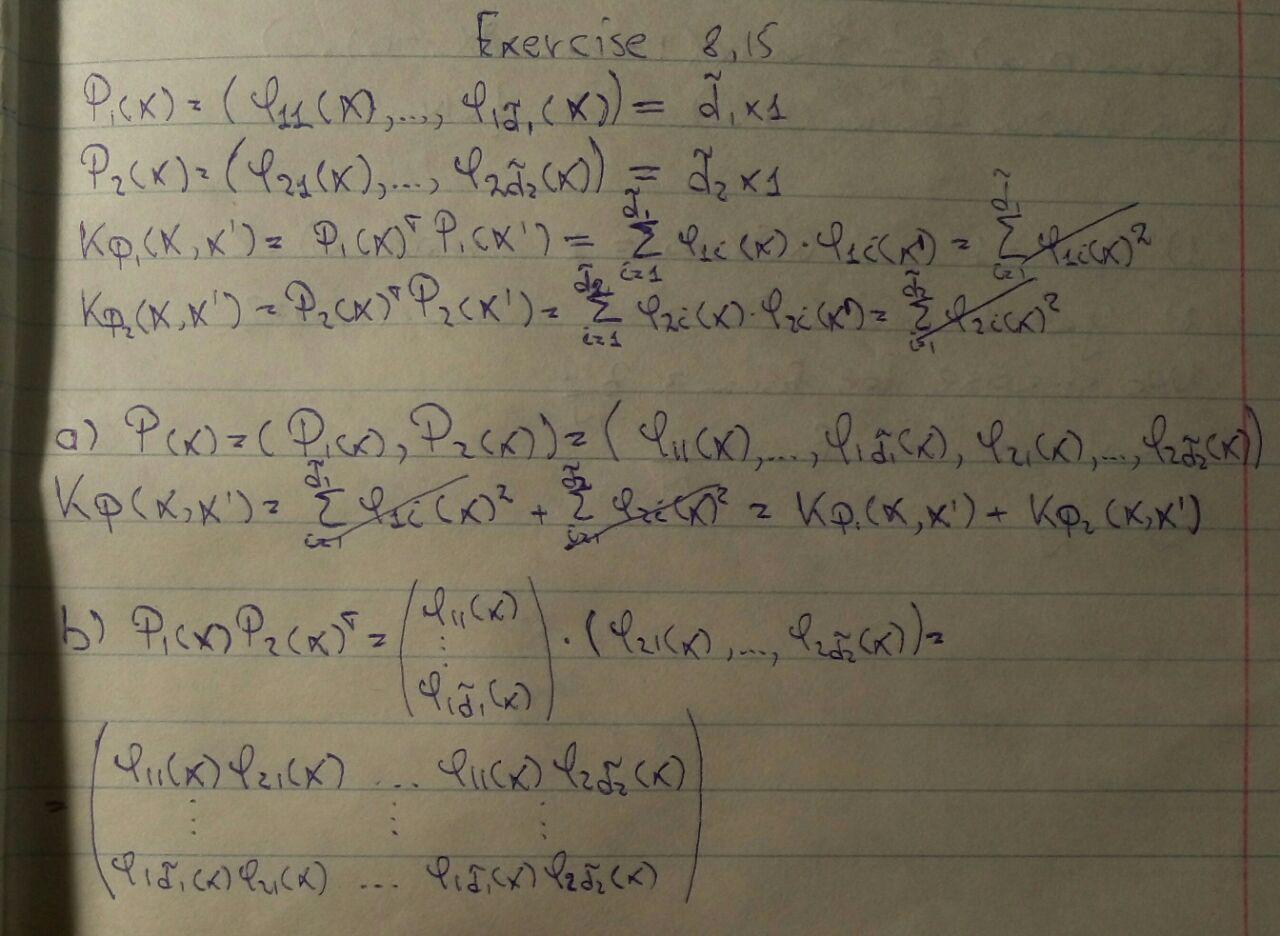 Exercise 8,15
Φ₁(x) = (φ₁₁(x),..., φ₁d̃₁(x)) = d̃₁×1
Φ₂(x) = (φ₂₁(x),..., φ₂d̃₂(x)) = d̃₂×1
KΦ₁(x,x') = Φ₁(x)ᵀΦ₁(x') = Σᵢ₌₁^d̃₁ φ₁ᵢ(x)·φ₁ᵢ(x') = Σᵢ₌₁^d̃₁ φ₁ᵢ(x)²
KΦ₂(x,x') = Φ₂(x)ᵀΦ₂(x') = Σᵢ₌₁^d̃₂ φ₂ᵢ(x)·φ₂ᵢ(x') = Σᵢ₌₁^d̃₂ φ₂ᵢ(x)²
a) Φ(x) = (Φ₁(x), Φ₂(x)) = (φ₁₁(x),..., φ₁d̃₁(x), φ₂₁(x),..., φ₂d̃₂(x))
KΦ(x,x') = Σᵢ₌₁^d̃₁ φ₁ᵢ(x)² + Σᵢ₌₁^d̃₂ φ₂ᵢ(x)² = KΦ₁(x,x') + KΦ₂(x,x')
b) Φ₁(x)Φ₂(x)ᵀ = (φ₁₁(x) ⋮ φ₁d̃₁(x)) · (φ₂₁(x),..., φ₂d̃₂(x)) =
= (φ₁₁(x)φ₂₁(x) ... φ₁₁(x)φ₂d̃₂(x)
⋮ ⋮ ⋮
φ₁d̃₁(x)φ₂₁(x) ... φ₁d̃₁(x)φ₂d̃₂(x))